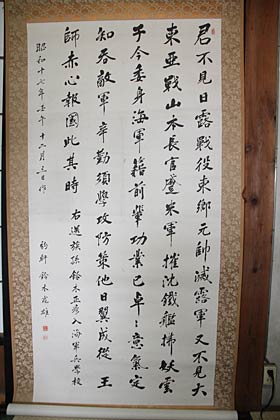 君不見日露戰役東郷元帥滅露軍又不見大
東亞戰山本長官鏖米軍摧沈鐵艦掃妖雲
于今委身海軍籍前輩功業已卓〻意氣定
知吞敵軍辛勤須學攻防策他日翼成從王
師赤心報國此其時
右送族孫鈴木正彦入海軍兵學校
昭和十七年壬午十二月三日作
豹軒 鈴木虎雄